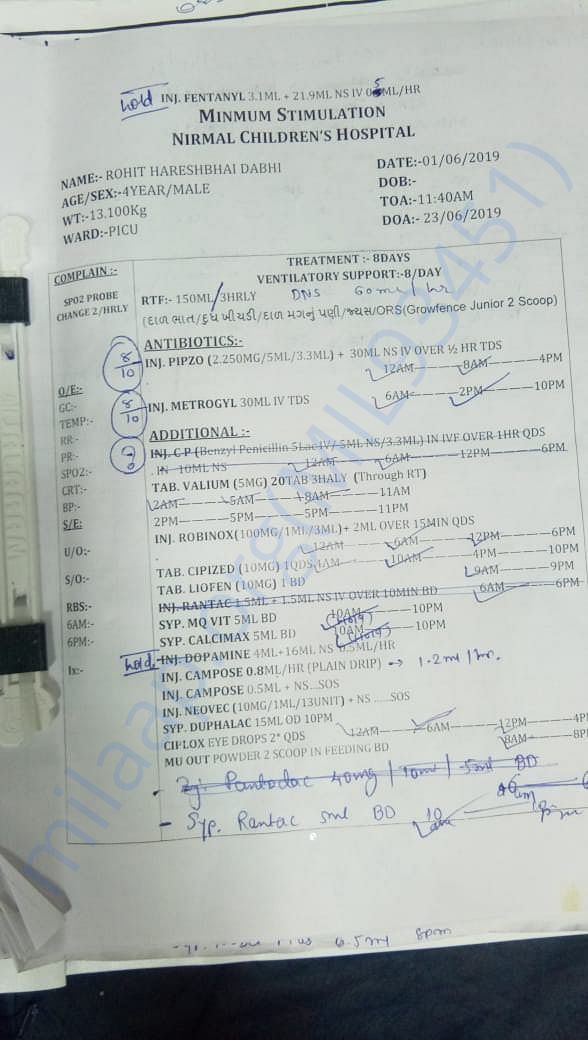 hold INJ. FENTANYL 3.1ML + 21.9ML NS IV 0.5ML/HR
MINMUM STIMULATION
NIRMAL CHILDREN'S HOSPITAL
NAME:- ROHIT HARESHBHAI DABHI
AGE/SEX:-4YEAR/MALE
WT:-13.100Kg
WARD:-PICU
DATE:-01/06/2019
DOB:-
TOA:-11:40AM
DOA:- 23/06/2019
COMPLAIN :-
SPO2 PROBE
CHANGE 2/HRLY
O/E:-
GC:-
TEMP:-
RR:-
PR:-
SPO2:-
CRT:-
BP:-
S/E:
U/O:-
S/O:-
RBS:-
6AM:-
6PM:-
Ix:-
TREATMENT :- 8DAYS
VENTILATORY SUPPORT:-8/DAY
RTF:- 150ML/3HRLY DNS 60ml/hr
(દાળ ભાત/દુધ ખીચડી/દાળ મગનું પણી/જ્યુસ/ORS(Growfence Junior 2 Scoop)
ANTIBIOTICS:-
8/10 INJ. PIPZO (2.250MG/5ML/3.3ML) + 30ML NS IV OVER ½ HR TDS
12AM 8AM 4PM
8/10 INJ. METROGYL 30ML IV TDS 6AM 2PM 10PM
ADDITIONAL :-
INJ. C P (Benzyl Penicillin 5Lac IV/ 5ML NS/3.3ML) IN IVF OVER 1HR QDS
. IN 10ML NS 12AM 6AM 12PM 6PM
TAB. VALIUM (5MG) 20TAB 3HALY (Through RT)
2AM 5AM 8AM 11AM
2PM 5PM 5PM 11PM
INJ. ROBINOX(100MG/1ML/3ML)+ 2ML OVER 15MIN QDS
. 12AM 6AM 12PM 6PM
TAB. CIPIZED (10MG) 1QDS 4AM 10AM 4PM 10PM
TAB. LIOFEN (10MG) 1 BD 9AM 9PM
INJ. RANTAC 1.5ML + 1.5ML NS IV OVER 10MIN BD 6AM 6PM
SYP. MQ VIT 5ML BD 10AM (Hold) 10PM
SYP. CALCIMAX 5ML BD 10AM (Hold) 10PM
hold INJ. DOPAMINE 4ML+16ML NS 0.5ML/HR
INJ. CAMPOSE 0.8ML/HR (PLAIN DRIP) → 1.2ml/hr.
INJ. CAMPOSE 0.5ML + NS...SOS
INJ. NEOVEC (10MG/1ML/13UNIT) + NS ......SOS
SYP. DUPHALAC 15ML OD 10PM
CIPLOX EYE DROPS 2* QDS 12AM 6AM 12PM 4P
MU OUT POWDER 2 SCOOP IN FEEDING BD 8AM 8P
Inj. Pantodac 40mg/10ml/5ml BD
- Syp. Rantac 5ml BD 10
6.5ml 8pm
milaap.org(MIL93451)